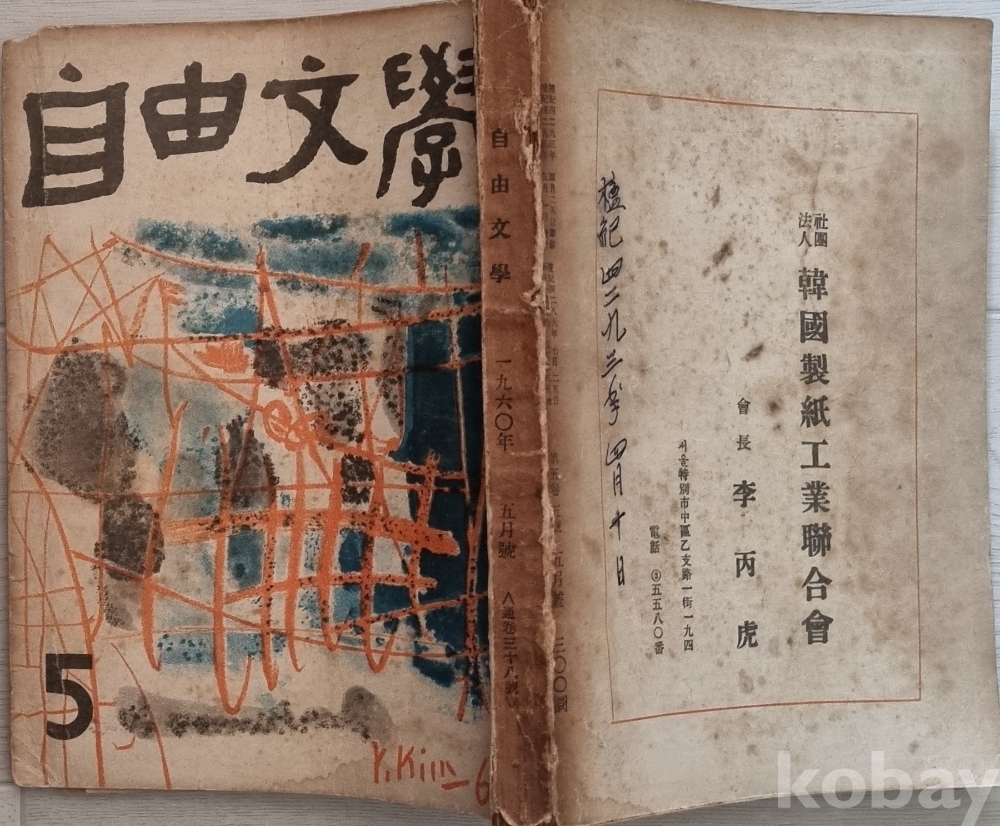 自由文學
5
Y. Kim-6
自由文學 一九六〇年 五月號 ∧通卷三十八號
三〇〇圜
檀紀四二九三年四月十日
社團法人 韓國製紙工業聯合會
會長 李丙虎
서울特別市中區乙支路一街一九四
電話 ③五五八〇番
kobay